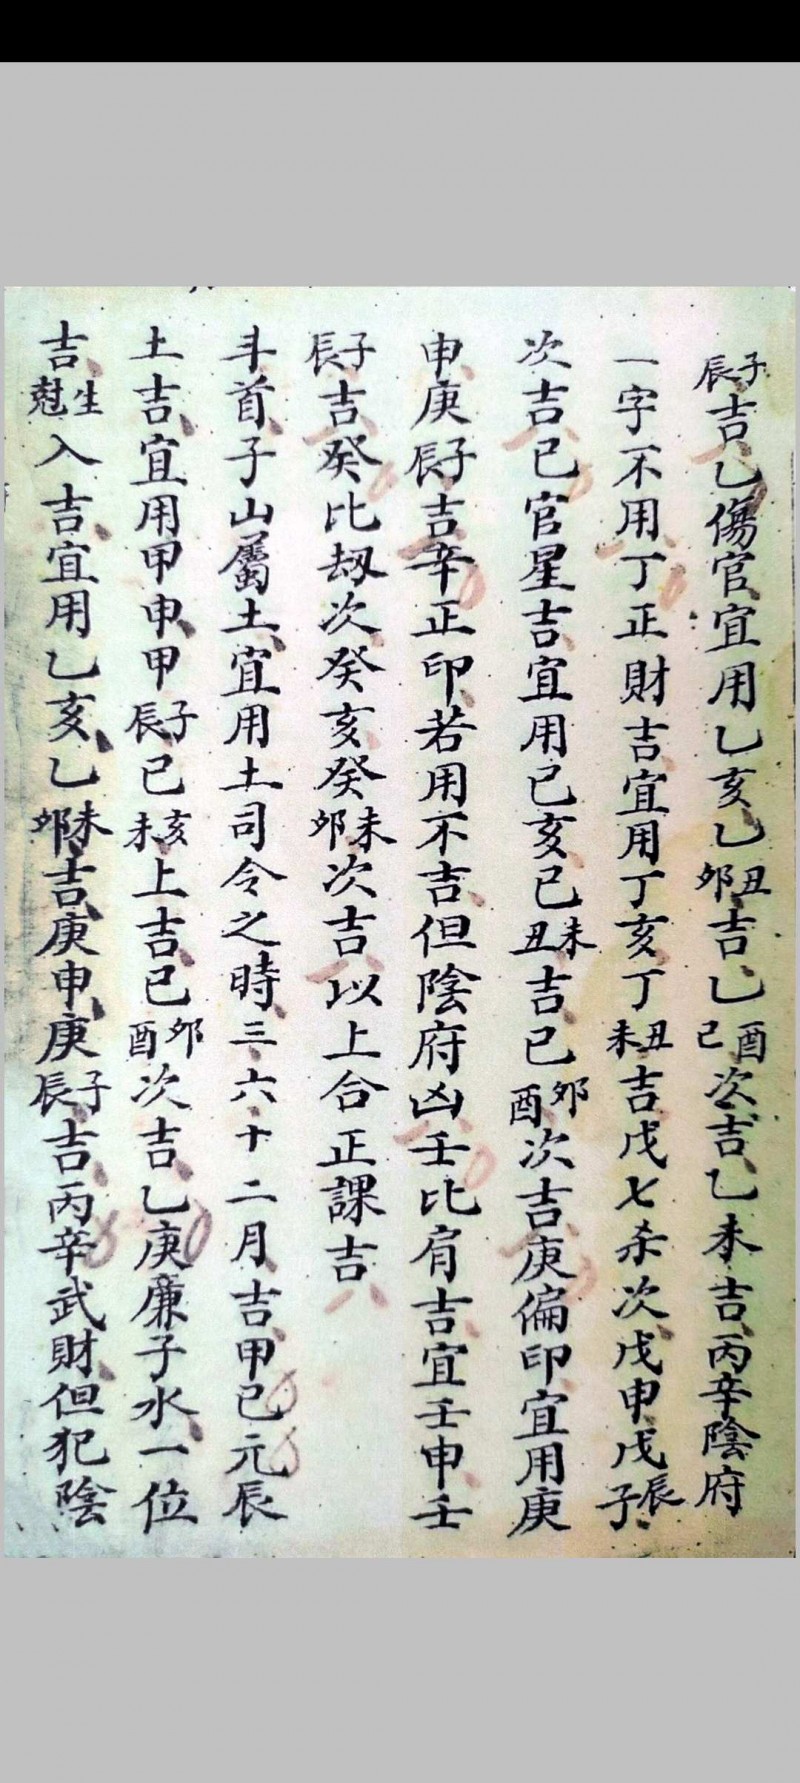 子辰吉乙傷官宜用乙亥乙丑夘吉乙酉已次吉乙未吉丙辛陰府
一字不用丁正財吉宜用丁亥丁丑未吉戊七杀次戊申戊辰子
次吉已官星吉宜用已亥已未丑吉已夘酉次吉庚偏印宜用庚
申庚子辰吉辛正印若用不吉但陰府凶壬比肩吉宜壬申壬
子辰吉癸比刼次癸亥癸未夘次吉以上合正課吉
斗首子山屬土宜用土司令之時三六十二月吉甲已元辰
土吉宜用甲申甲子辰已亥未上吉已夘酉次吉乙庚廉子水一位
吉生尅入吉宜用乙亥乙未夘吉庚申庚子辰吉丙辛武財但犯陰